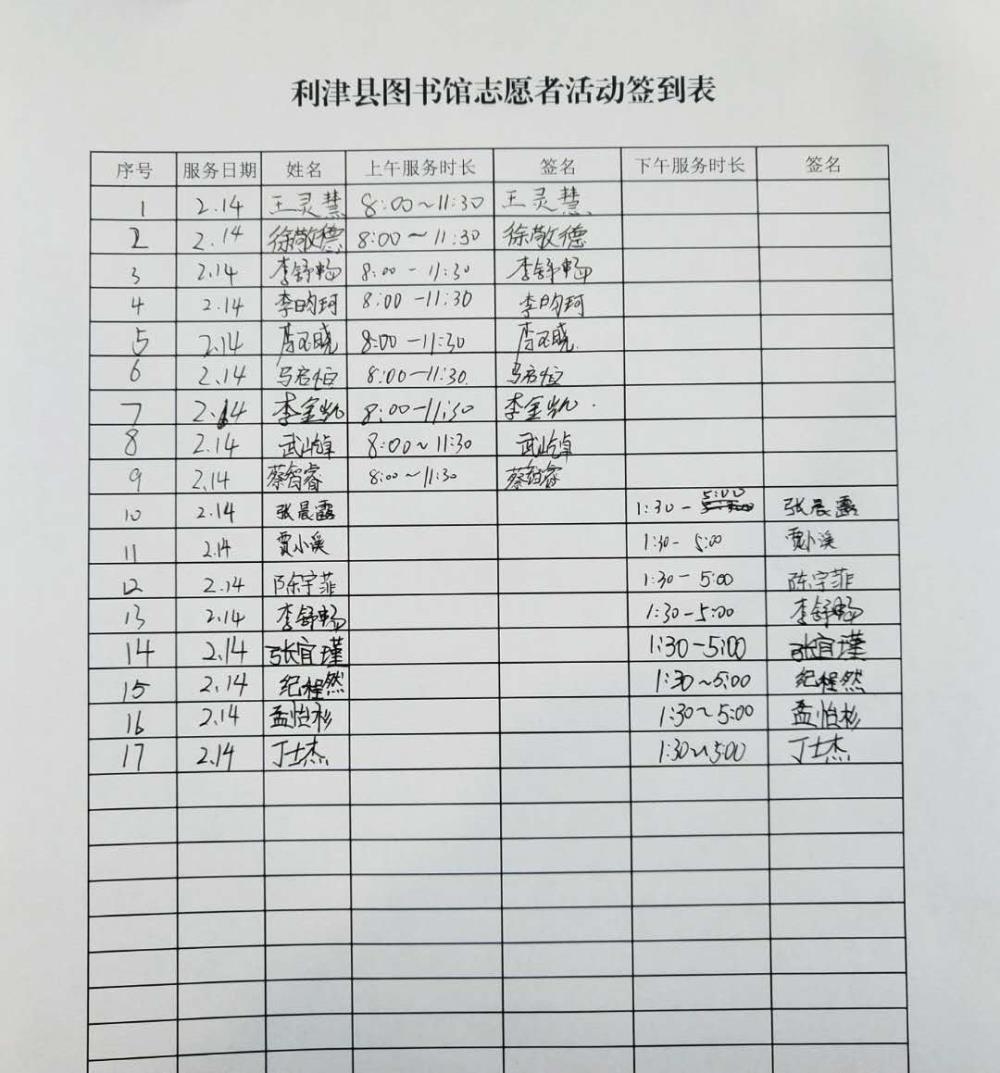 利津县图书馆志愿者活动签到表
序号 服务日期 姓名 上午服务时长 签名 下午服务时长 签名
1 2.14 王灵慧 8:00~11:30 王灵慧
2 2.14 徐敬德 8:00~11:30 徐敬德
3 2.14 李舒畅 8:00-11:30 李舒畅
4 2.14 李昀珂 8:00-11:30 李昀珂
5 2.14 8:00-11:30
6 2.14 马启恒 8:00-11:30 马启恒
7 2.14 李金凯 8:00-11:30 李金凯
8 2.14 武屾焯 8:00~11:30
9 2.14 蔡智睿 8:00~11:30 蔡智睿
10 2.14 张晨露 1:30-5:00 张晨露
11 2.14 贾小溪 1:30-5:00 贾小溪
12 2.14 陈宇菲 1:30-5:00 陈宇菲
13 2.14 李舒畅 1:30-5:00 李舒畅
14 2.14 张宜瑾 1:30-5:00 张宜瑾
15 2.14 纪程然 1:30~5:00 纪程然
16 2.14 孟怡衫 1:30~5:00 孟怡杉
17 2.14 丁士杰 1:30~5:00 丁士杰